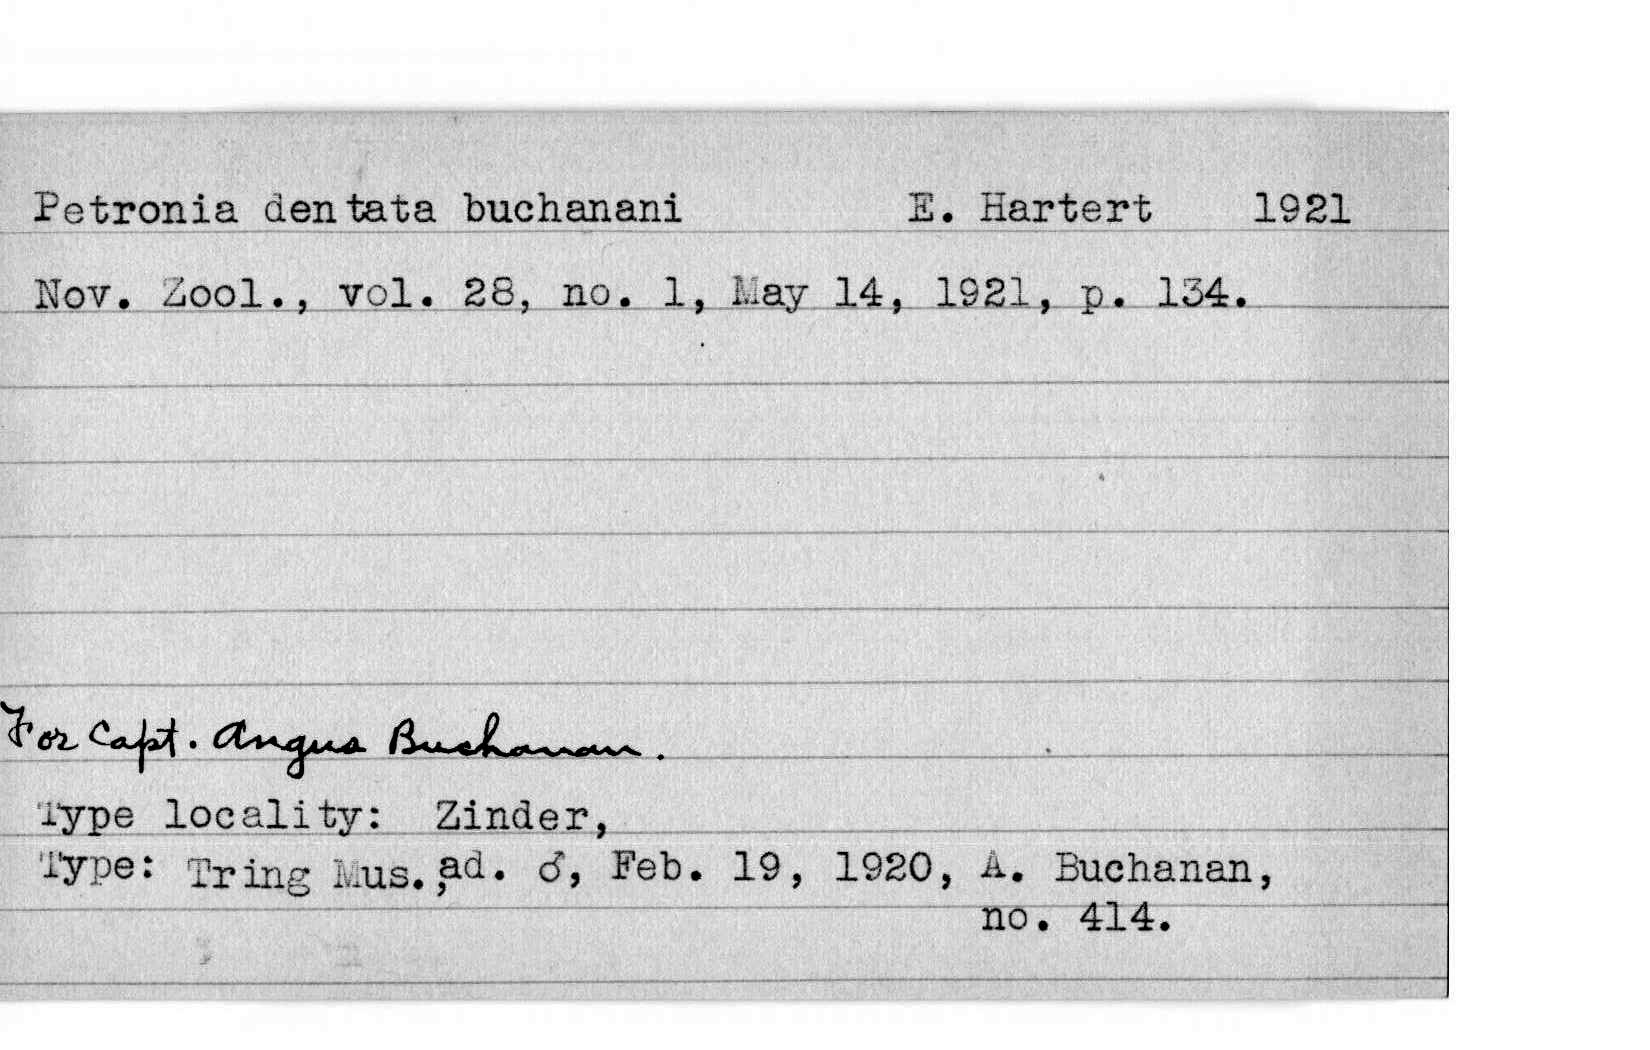 Petronia dentata buchanani E. Hartert 1921
Nov. Zool., vol. 28, no. 1, May 14, 1921, p. 134.
For Capt. Angus Buchanan.
Type locality: Zinder,
Type: Tring Mus., ad. ♂, Feb. 19, 1920, A. Buchanan,
no. 414.